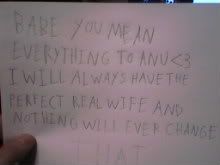 BABE YOU MEAN
EVERYTHING TO ANU<3
I WILL ALWAYS HAVE THE
PERFECT REAL WIFE AND
NOTHING WILL EVER CHANGE
THAT